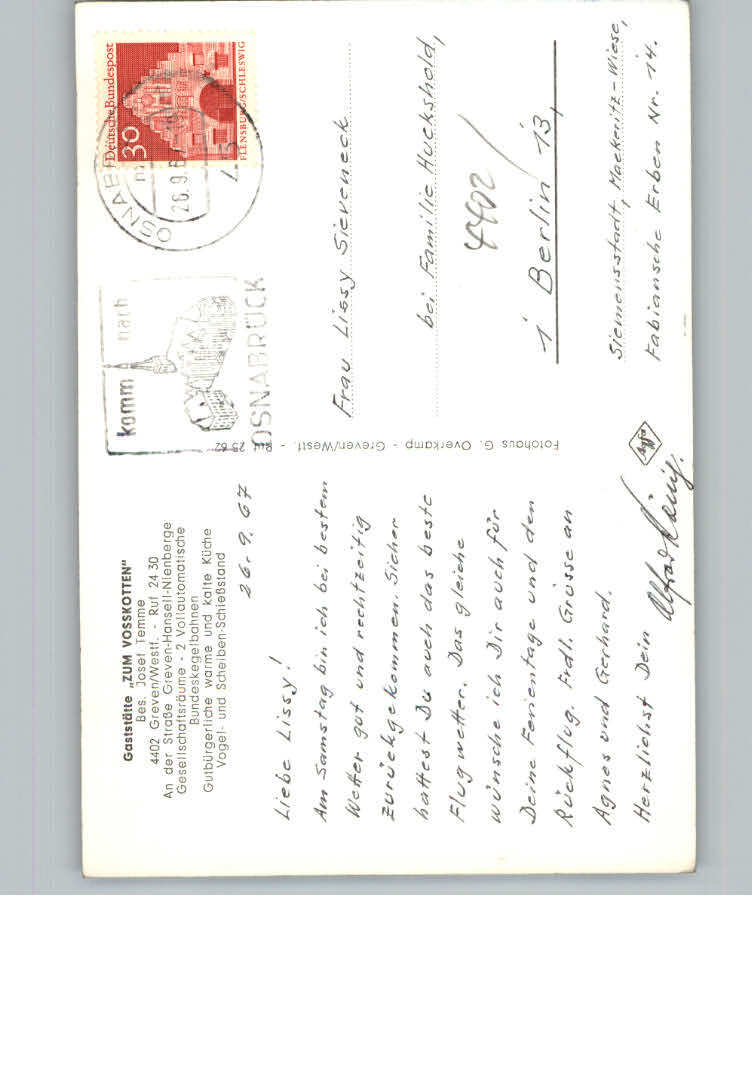 Gaststätte „ZUM VOSSKOTTEN"
Bes. Josef Temme
4402 Greven/Westf. - Ruf 24 30
An der Straße Greven-Hansell-Nienberge
Gesellschaftsräume - 2 Vollautomatische
Bundeskegelbahnen
Gutbürgerliche warme und kalte Küche
Vogel- und Scheiben-Schießstand
26. 9. 67
Liebe Lissy!
Am Samstag bin ich bei bestem
Wetter gut und rechtzeitig
zurückgekommen. Sicher
hattest Du auch das beste
Flugwetter. Das gleiche
wünsche ich Dir auch für
Deine Ferientage und den
Rückflug. Frdl. Grüsse an
Agnes und Gerhard.
Herzlichst Dein
Alfred König.
Fotohaus G. Overkamp - Greven/Westf. - Ruf 25 62
Agfa
komm nach
OSNABRÜCK
OSNAB
26.9.6
Deutsche Bundespost
30
FLENSBURG/SCHLESWIG
Frau Lissy Sieveneck
bei Familie Huckshold,
4402
1 Berlin 13,
Siemensstadt, Mäckeritz-Wiese,
Fabiansche Erben Nr. 14.